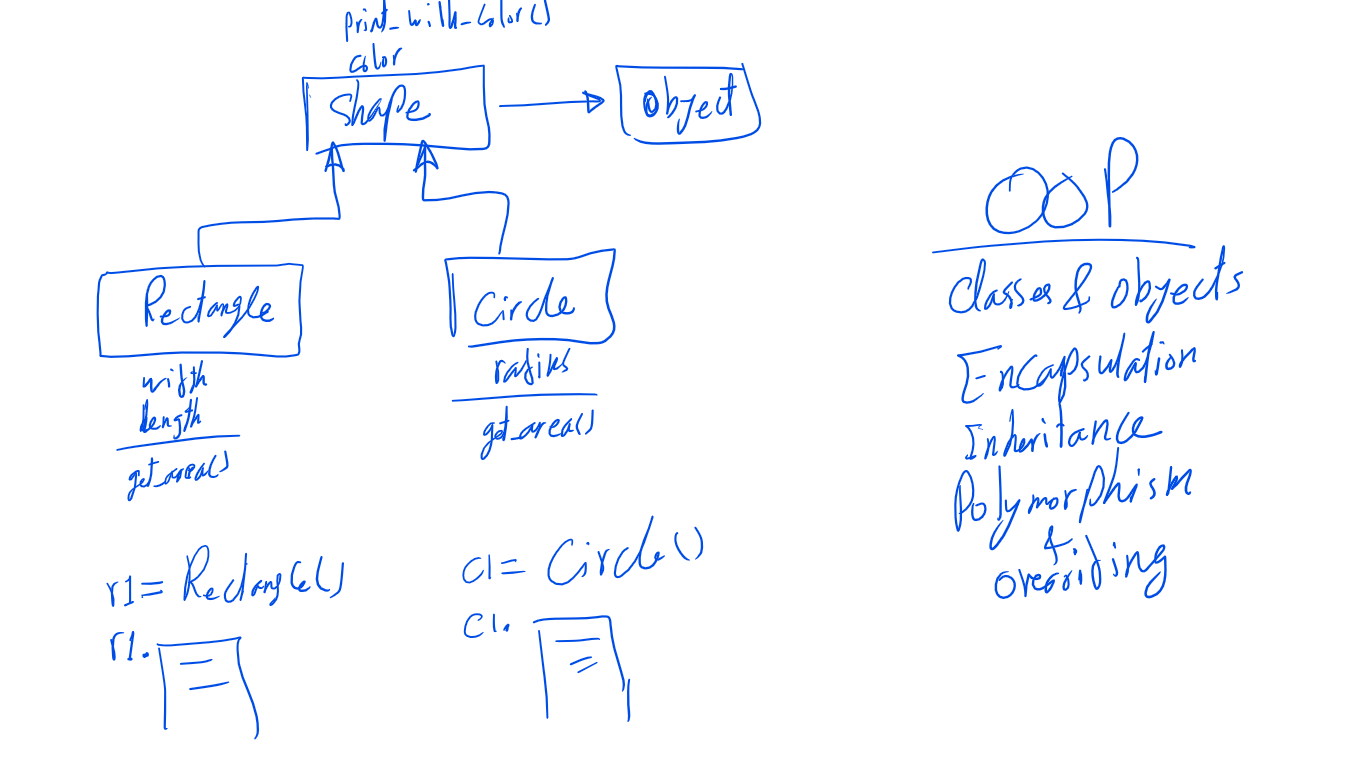 print_with_color()
color
Shape
object
Rectangle
width
length
get_area()
Circle
radius
get_area()
r1= Rectangle()
r1.
c1= Circle()
c1.
OOP
Classes & objects
Encapsulation
Inheritance
Polymorphism
&
overriding